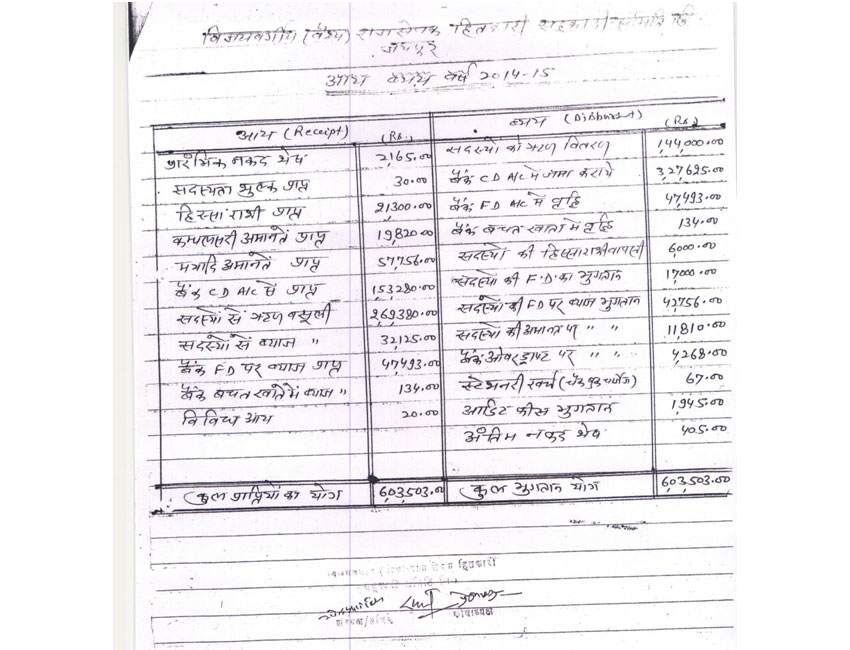 विजयवर्गीय (वैश्य) राजसेवक हितकारी सहकारी समिति लि
जयपुर
आय व्यय वर्ष 2014-15
आय (Receipt) (Rs.) व्यय (Disburst) (Rs.)
प्रारंभिक नकद शेष 2165.00 सदस्यों को ऋण वितरण 1,44,000.00
सदस्यता शुल्क प्राप्त 30.00 बैंक CD A/C में जमा कराये 3,27,625.00
हिस्सा राशी प्राप्त 21300.00 बैंक FD A/C में वृद्धि 47,493.00
कम्पलसरी अमानतें प्राप्त 19,820.00 बैंक बचत खाता में वृद्धि 134.00
मयादि अमानतें प्राप्त 57,756.00 सदस्यों की हिस्सा राशी वापसी 6,000.00
बैंक CD A/C से प्राप्त 153280.00 सदस्यों की F.D. का भुगतान 17,000.00
सदस्यों से ऋण वसूली 2,69,380.00 सदस्यों की FD पर ब्याज भुगतान 42,756.00
सदस्यों से ब्याज " 32,125.00 सदस्यों की अमानत पर " " 11,810.00
बैंक FD पर ब्याज प्राप्त 47,493.00 बैंक ओवर ड्राफ्ट पर " " 4,268.00
बैंक बचत खाते में ब्याज " 134.00 स्टेशनरी खर्च (चैक बुक चार्जेज) 67.00
विविध आय 20.00 आडिट फीस भुगतान 1,945.00
अंतिम नकद शेष 405.00
कुल प्राप्तियों का योग 6,03,503.00 कुल भुगतान योग 6,03,503.00
हितकारी
कोषाध्यक्ष